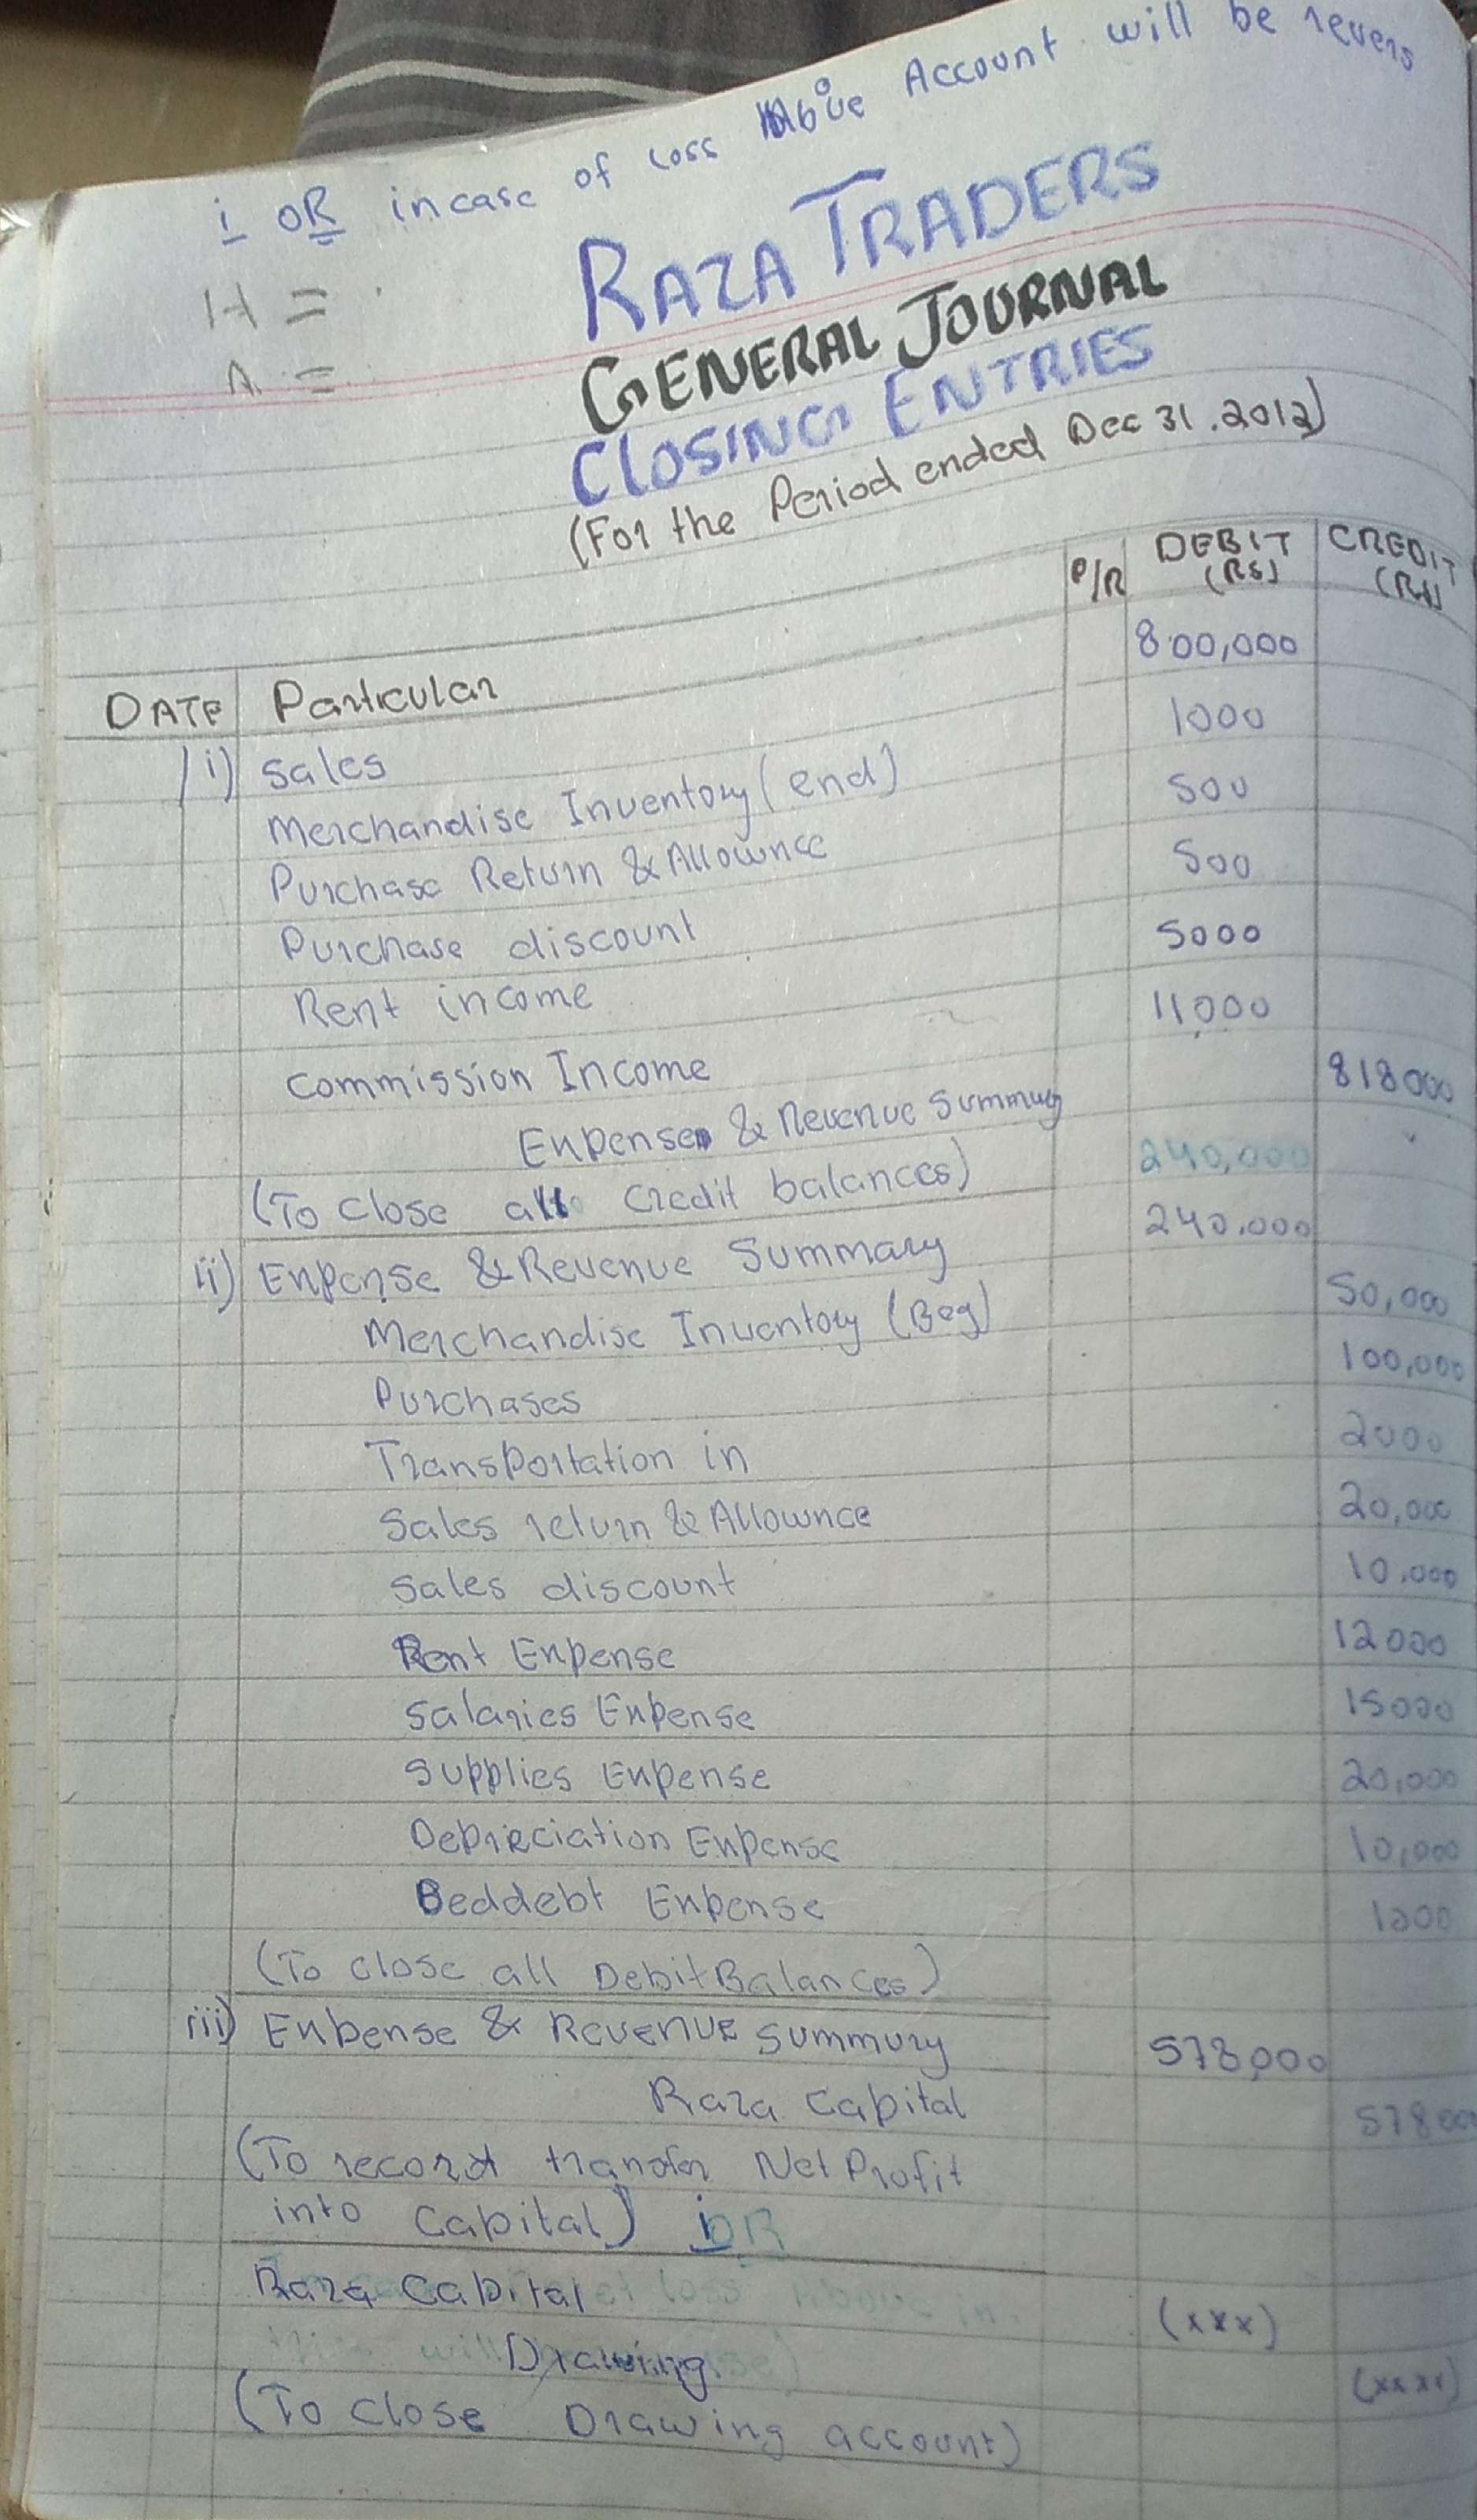 i OR incase of Loss Above Account will be revers
RAZA TRADERS
GENERAL JOURNAL
CLOSING ENTRIES
(For the Period ended Dec 31.2012)
DATE Particular P/R DEBIT (RS) CREDIT (RS)
i) Sales 800,000
Merchandise Inventory (end) 1000
Purchase Return & Allownce 500
Purchase discount 500
Rent income 5000
Commission Income 11,000
Expense & Revenue Summury 818000
(To close all Credit balances) 240,000
ii) Expense & Revenue Summary 240.000
Merchandise Inventory (Beg) 50,000
Purchases 100,000
Transportation in 2000
Sales return & Allownce 20,000
Sales discount 10.000
Rent Expense 12000
Salaries Expense 15000
Supplies Expense 20,000
Depreciation Expense 10,000
Beddebt Expense 1000
(To close all Debit Balances)
iii) Expense & Revenue Summury 578,000
Raza Capital 57800
(To record transfer Net Profit
into Capital) i OR
Raza Capital (xxx)
Drawing. (xxxx)
(To close Drawing account)